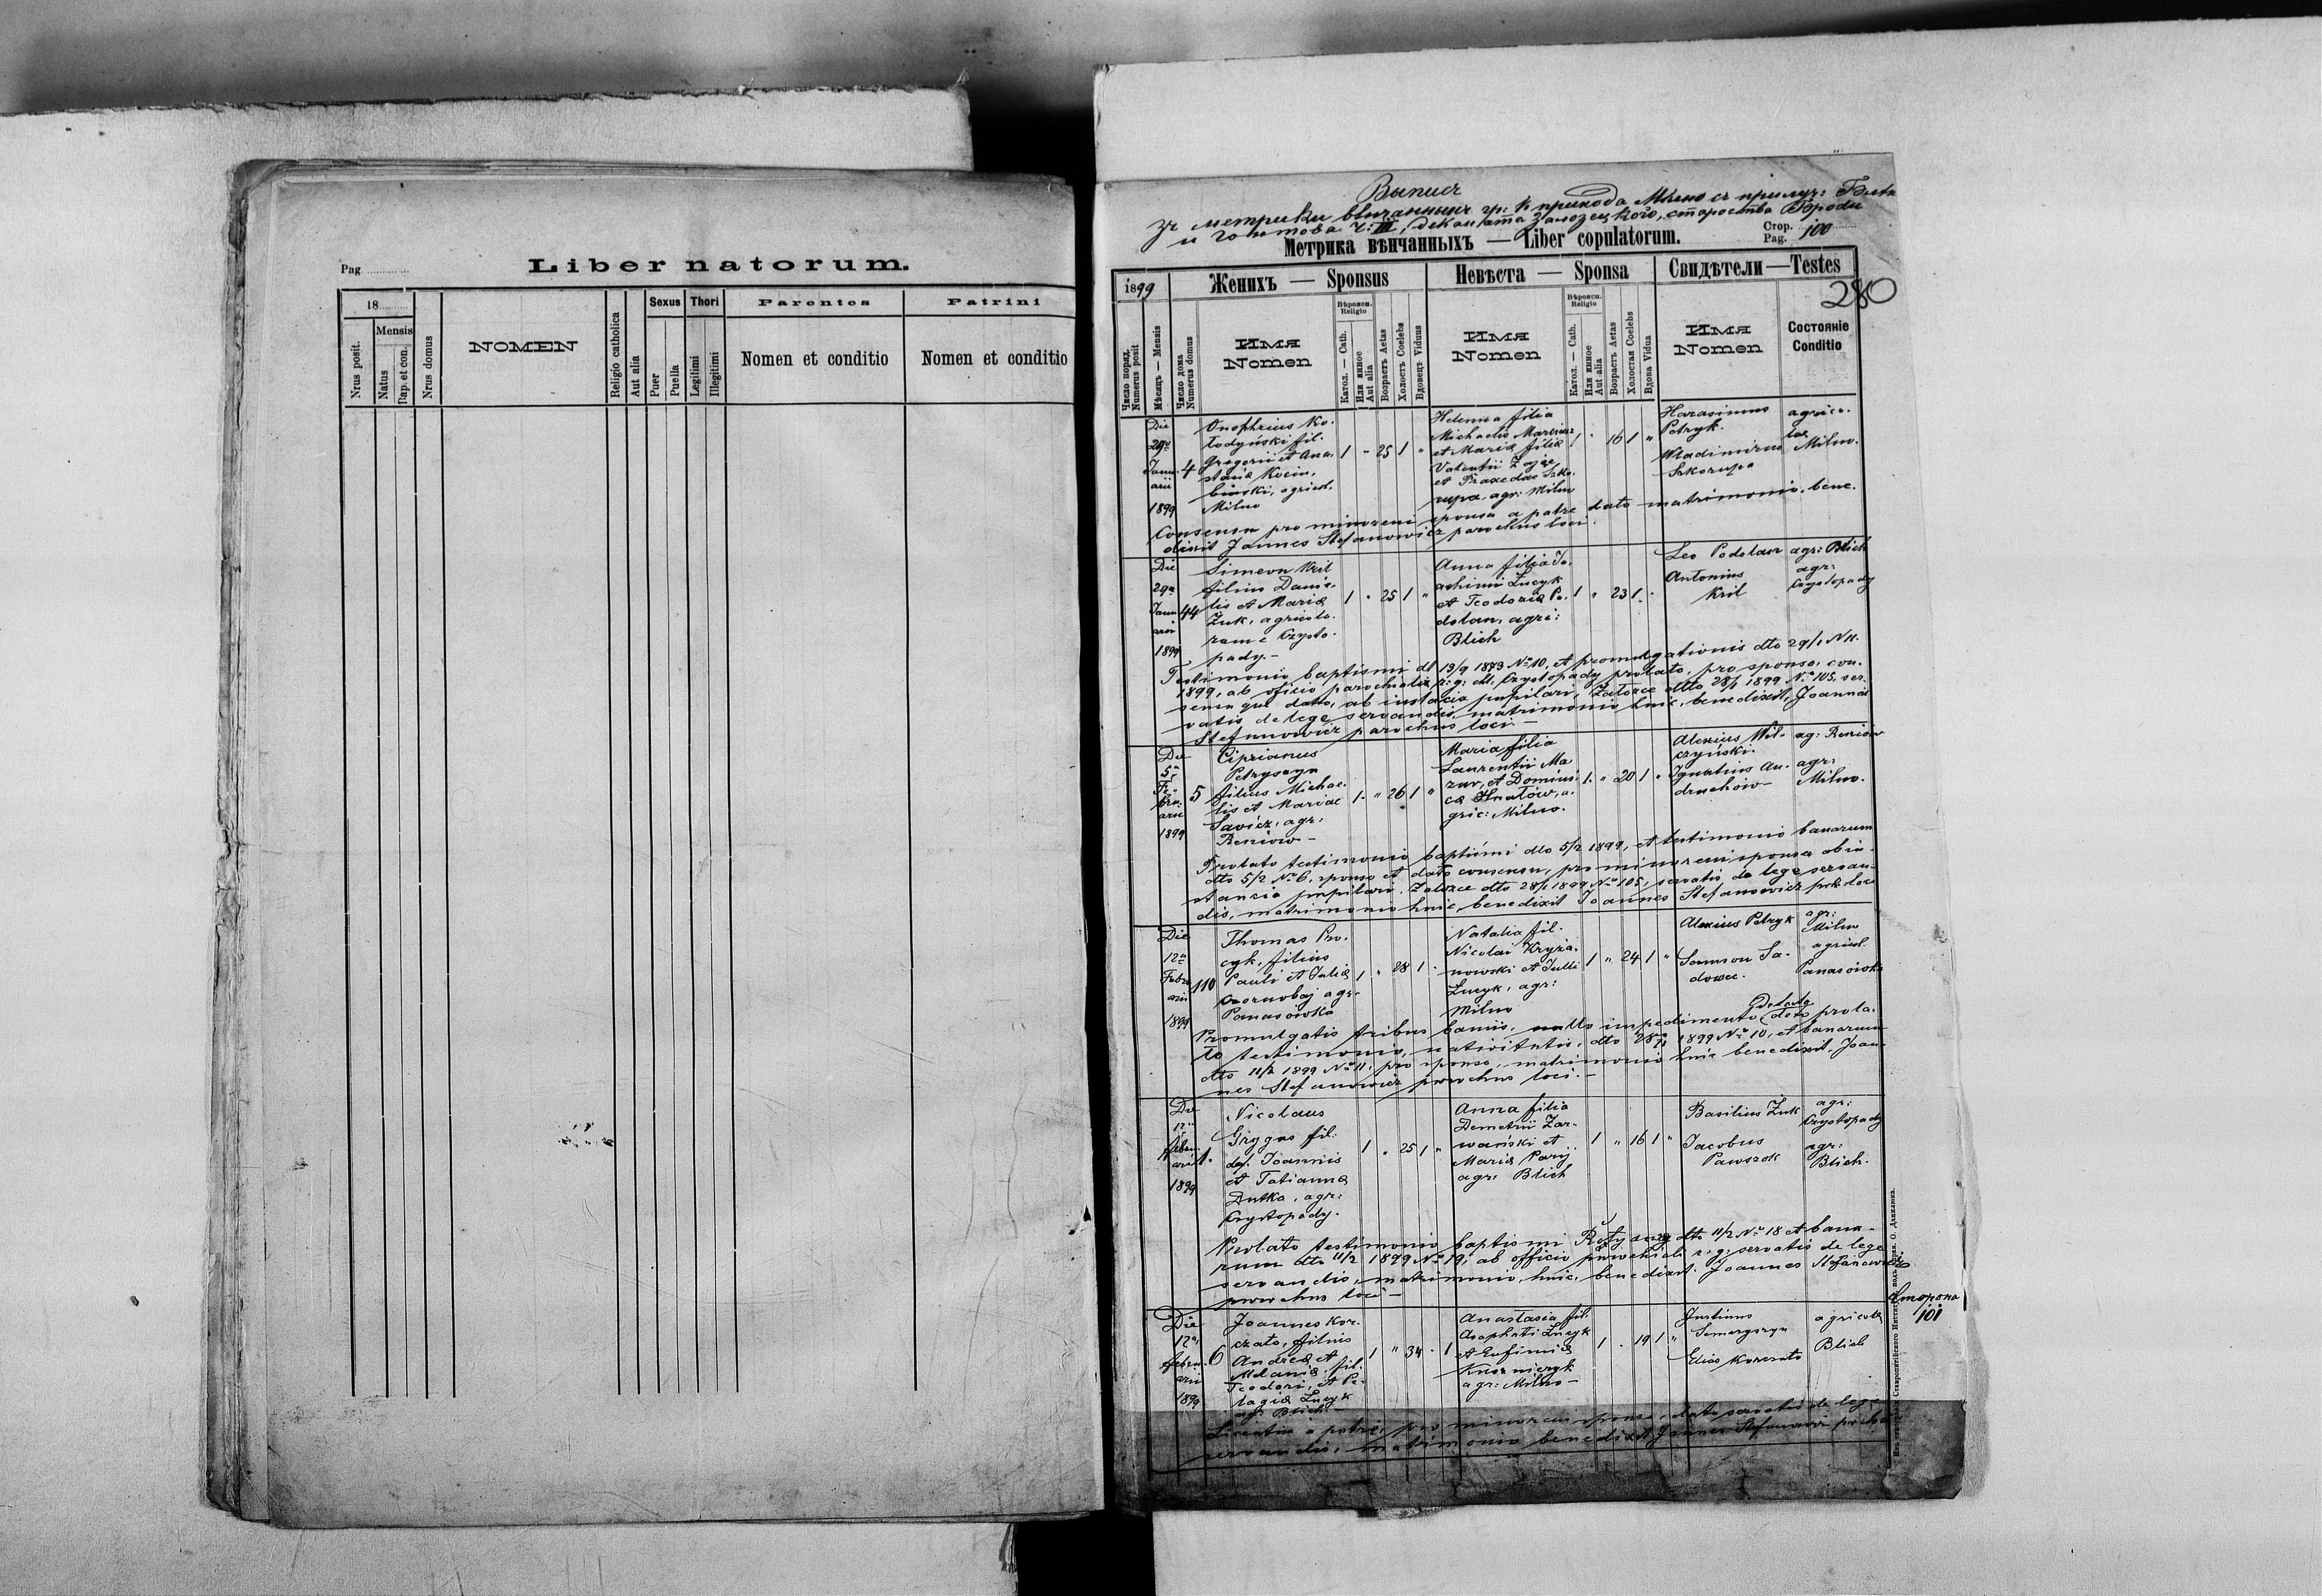 Pag.
Liber natorum.
18
Nrus posit.
Mensis
Natus
Пap. et con.
Nrus domus
NOMEN
Religio catholica
Aut alia
Sexus
Puer
Puella
Thori
Legitimi
Illegitimi
Parentes
Nomen et conditio
Patrini
Nomen et conditio
Выпись
зъ метрики вѣнчанныхъ гр: к прихода Мильно съ прилуч:
и Гонтова Ч: III, деканата Залозецкого, староства Броды
Метрика вѣнчанныхъ — Liber copulatorum.
Стор.
Pag. 100
280
1899
Женихъ — Sponsus
Невѣста — Sponsa
Свидѣтели — Testes
Число поряд.
Numerus posit
Мѣсяцъ — Mensis
Число дома
Numerus domus
Имя
Nomen
Вѣроисп.
Religio
Катол. — Cath.
Или инное
Aut alia
Возрастъ Aetas
Холостъ Coelebs
Вдовецъ Viduus
Имя
Nomen
Вѣроисп.
Religio
Катол. — Cath.
Или инное
Aut alia
Возрастъ Aetas
Холостая Coelebs
Вдова Vidua
Имя
Nomen
Состояніе
Conditio
Die
29a
Janu-
arii
1899
4
Onophrius Ko-
łodyński fil.
Gregorii et Ana-
stasiä Kocim-
biński, agricol.
Milno
1 " 25 1 "
Helenna filia
Michaelis Marciniz
et Mariä filiä
Valentii Zając
et Praxedae Szko-
rupa, agr: Milno
1 " 16 1 "
Harasimus
Petryk.
Wladimirus
Szkorupa
agrico-
lae
Milno.
Consensu pro minoreni sponsa a patre dato matrimonio, bene-
dixit Joannes Stefanowicz parochus loci.
Die
29a
Janu
arii
1899
44
Simeon Kril
filius Danie-
lis et Mariä
Żuk, agricola-
rum e Czysto-
pady.-
1 " 25 1 "
Anna filia Jo-
achimi Łucyk
et Teodoriä Po-
dolan, agri:
Blich
1 " 23 1 "
Leo Podolan
Antonius
Kril
agr: Blich
agr:
Czystopady
Testimonio baptismi dt 13/9 1873 No 10, et promulgationis dto 29/1 No 11.
1899, ab oficio parochiali r: g: dt. Czystopady prolato, pro sponso, con-
sensu que dato, ab instacia pupilari, Załoźce dtto 28/1 1899 No 105, ser-
vatis de lege servandis, matrimonio huic, benedixit, Joannes
Stefanowicz parochus loci.-
Die
5a
Fe-
bru-
arii
1899
5
Ciprianus
Petryszyn
filius Michae-
lis et Mariae
Savicz, agr:
Reniow-
1 " 26 1 "
Maria filia
Laurentii Ma
zur, et Domini-
cä Hnatów, a-
gric: Milno.
1 " 20 1 "
Alexius Wil-
czyński.
Ignatius An-
druchów-
ag: Reniów
agr:
Milno.
Prolato testimonio baptismi dto 5/2 1899, et testimonio banarum
dto 5/2 No 6. sponso et dato consensu, pro minoreni sponsa ab in-
stancia pupilari, Załoźce dto 28/1 1899 No 105, servatis de lege servan-
dis, matrimonio huic, benedixit Joannes Stefanowicz par: loci
Die
12a
Febru
arii
1899
110
Thomas Pro-
cyk, filius
Pauli et Juliä
Czornobaj agr-
Panasówka
1 " 28 1 "
Natalia fil.
Nicolai Kryża-
nowski et Julii
Łucyk, agr:
Milno
1 " 24 1 "
Alexius Petryk
Samson Sa-
dowee.
agr:
Milno
agricol.
Panasówka
Promulgatis tribus bannis, nullo impedimento detecto prola-
to testimonio, nativitatis, dto 28/1 1899 No 10, et banarum
dto 11/2 1899 No 11. pro sponso, matrimonio huic benedixit. Joan-
nes Stefanowicz parochus loci.-
Die
12a
febru-
arii
1899
1.
Nicolaus
Grygus fil:
def. Joannis
et Tatiannä
Dutka, agr:
Czystopady.
1 " 25 1 "
Anna filia
Demetrii Zar-
wański et
Mariä Paryj
agr: Blich
1 " 16 1 "
Basilius Żuk
Jacobus
Pawszok
agr:
Czystopady
agr:
Blich.
Prolato testimonio baptismi dto 11/2 No 18 et bana-
rum dto 11/2 1899 No 19, ab officio parochiali r: g: servatis de lege
servandis, matrimonio, huic, benedixit. Joannes Stefanowicz
parochus loci-
Die
12a
febru-
arii
1899
6
Joannes Kor-
czato, filius
Andreä et
Melaniä, fil.
Teodori, et Pe-
lagiä Łucyk
agr: Blich-
1 " 34 " 1
Anastasia fil.
Asaphati Łucyk
et Eufimiä
Kuszniryk
agr: Milno-
1 " 19 1 "
Justinus
Semeryszyn
Elias Korczato
agricolä
Blich
Licentia a patre, pro minoreni sponsa, dato servatis de lege
servandis, matrimonio benedixit Joannes Stefanowicz par: loci
Сторона
101